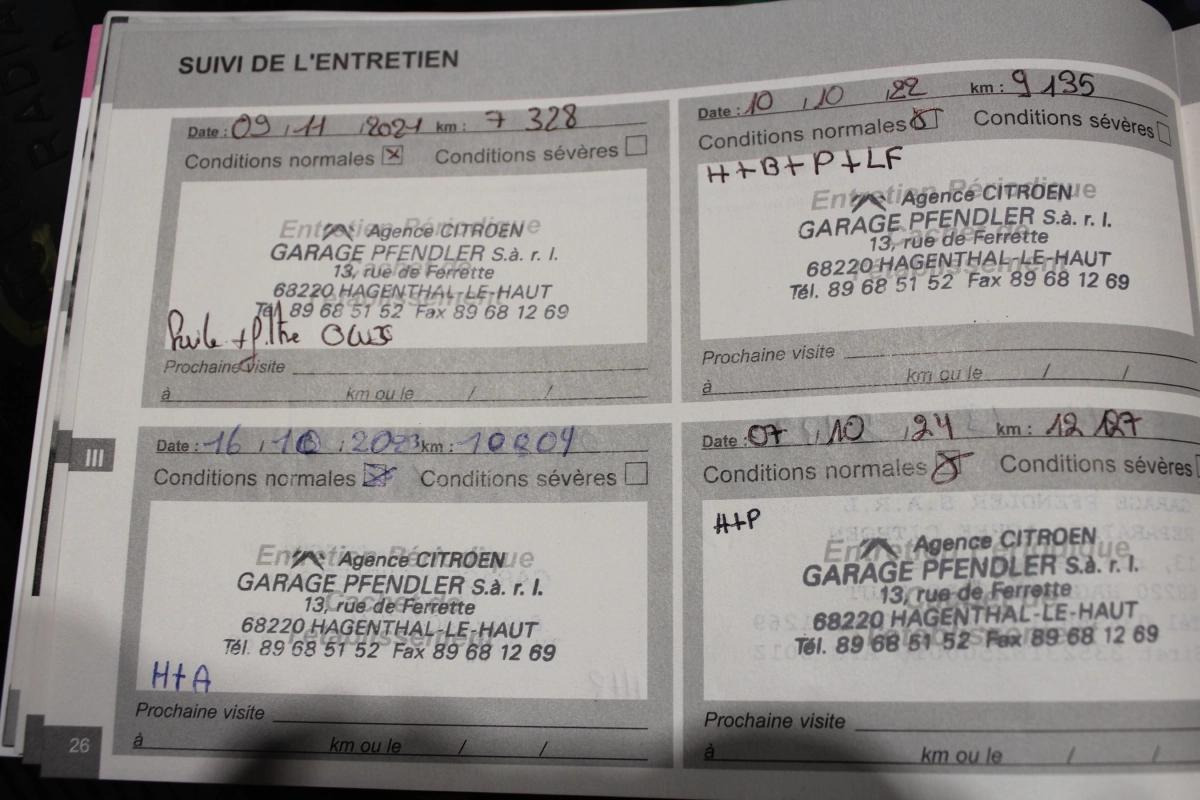 SUIVI DE L'ENTRETIEN
Date : 09 / 11 / 2021 km : 7 328
Conditions normales Conditions sévères
Entretien Périodique
Agence CITROEN
GARAGE PFENDLER S.à. r. l.
13, rue de Ferrette
68220 HAGENTHAL-LE-HAUT
Tél. 89 68 51 52 Fax 89 68 12 69
Huile + filtre
Prochaine visite
à km ou le / /
Date : 10 / 10 / 22 km : 9 135
Conditions normales Conditions sévères
H+B+P+LF
Entretien Périodique
Agence CITROEN
GARAGE PFENDLER S.à. r. l.
13, rue de Ferrette
68220 HAGENTHAL-LE-HAUT
Tél. 89 68 51 52 Fax 89 68 12 69
Prochaine visite
à km ou le / /
III
Date : 16 / 10 / 2023 km : 10804
Conditions normales Conditions sévères
Entretien Périodique
Cachet de
l'établissement
Agence CITROEN
GARAGE PFENDLER S.à. r. l.
13, rue de Ferrette
68220 HAGENTHAL-LE-HAUT
Tél. 89 68 51 52 Fax 89 68 12 69
H+A
Prochaine visite
à km ou le / /
Date : 07 / 10 / 24 km : 12 127
Conditions normales Conditions sévères
H+P
Entretien Périodique
Agence CITROEN
GARAGE PFENDLER S.à. r. l.
13, rue de Ferrette
68220 HAGENTHAL-LE-HAUT
Tél. 89 68 51 52 Fax 89 68 12 69
Prochaine visite
à km ou le / /
26